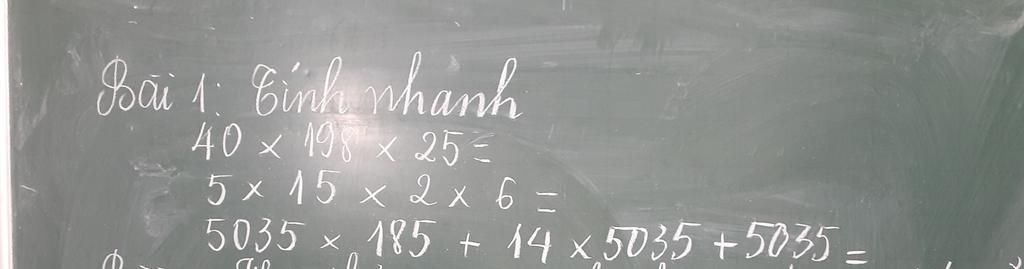 Bài 1: Tính nhanh
40 × 198 × 25 =
5 × 15 × 2 × 6 =
5035 × 185 + 14 × 5035 + 5035 =